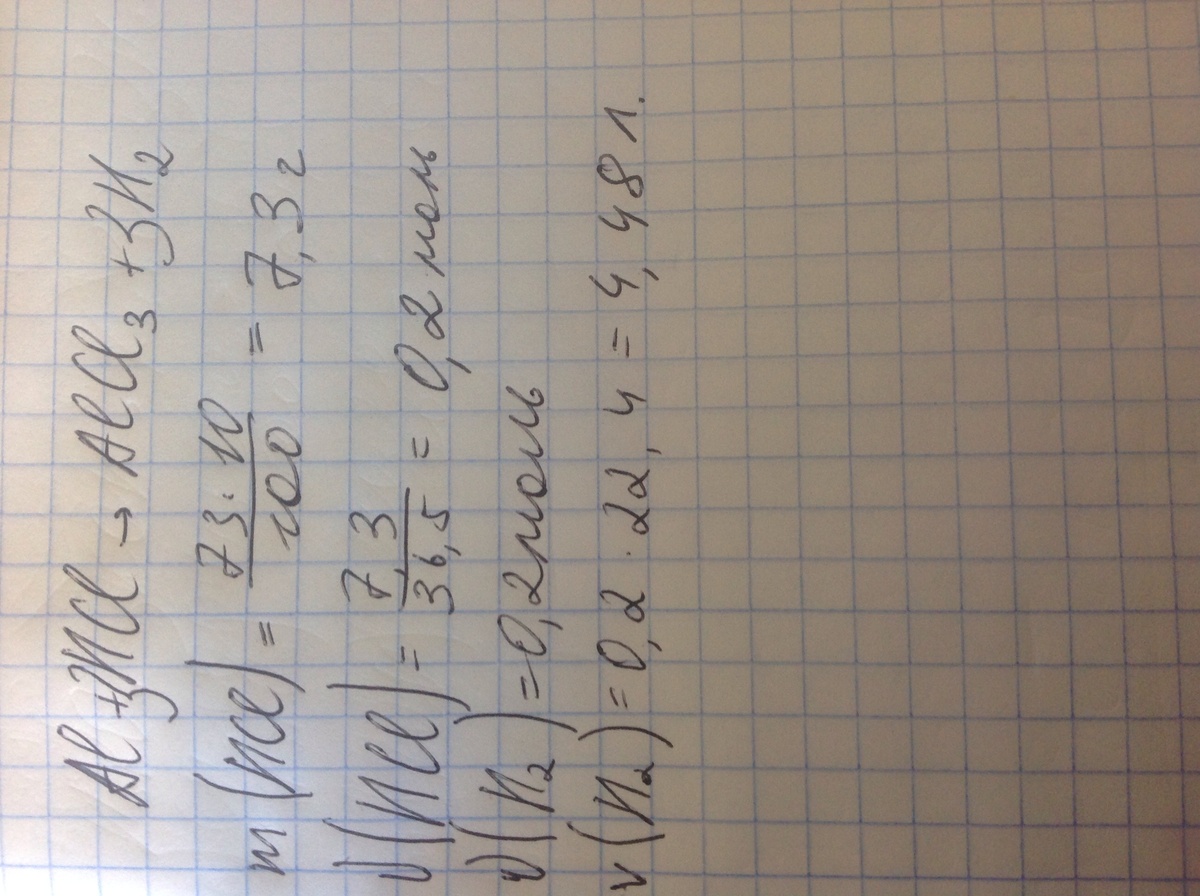 Al + 3HCl → AlCl₃ + 3H₂
m (HCl) = 73·10/100 = 7,3 г
ν (HCl) = 7,3/36,5 = 0,2 моль
ν (H₂) = 0,2 моль
v (H₂) = 0,2 · 22,4 = 4,48 л.